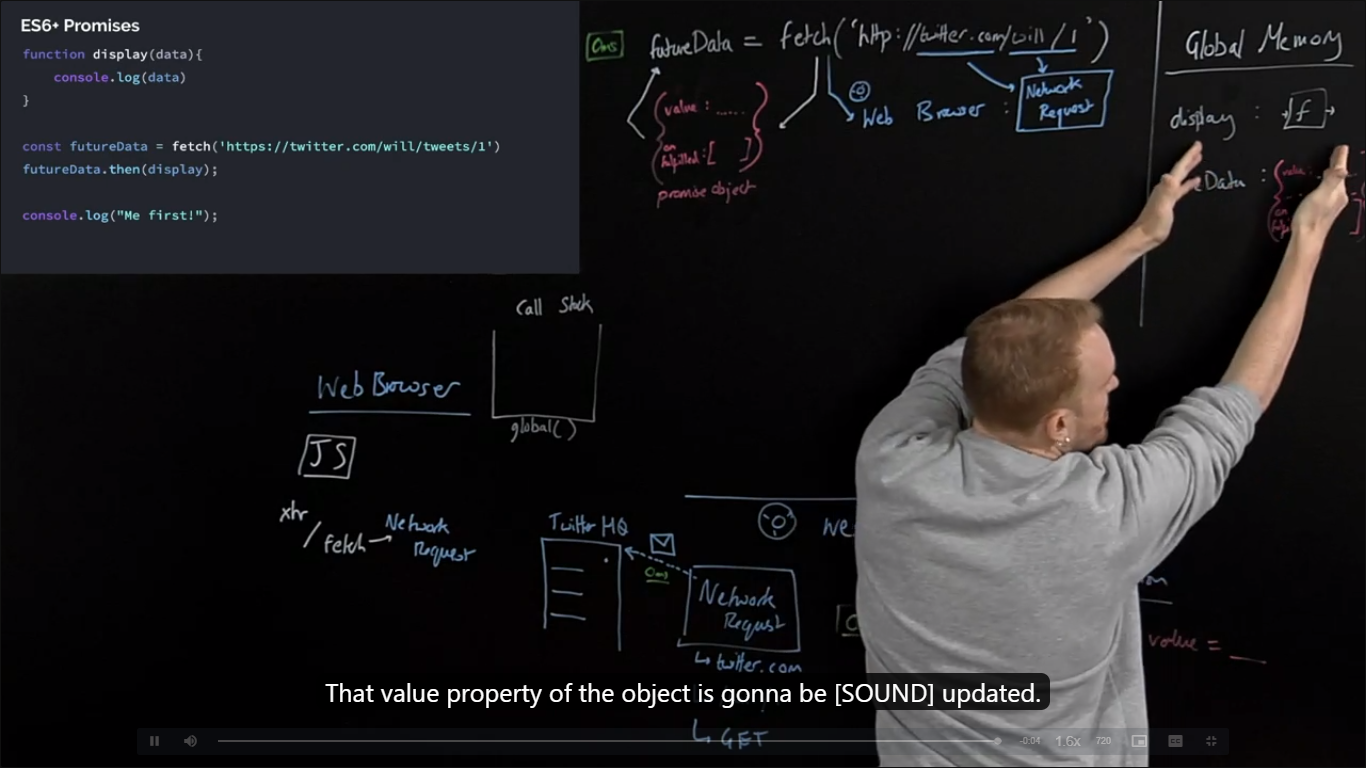 ES6+ Promises
function display(data){
console.log(data)
}
const futureData = fetch('https://twitter.com/will/tweets/1')
futureData.then(display);
console.log("Me first!");
0ms
futureData = fetch('http://twitter.com/will/1')
value : ......
on
fulfilled:[ ]
promise object
Web Browser :
Network
Request
Global Memory
display : f
eData :
value:
on
Call Stack
global()
Web Browser
JS
xhr
/ fetch → Network
Request
Twitter HQ
0ms
Network
Request
↳ twitter.com
↳ GET
value = __
That value property of the object is gonna be [SOUND] updated.
-0:04
1.6x
720
CC